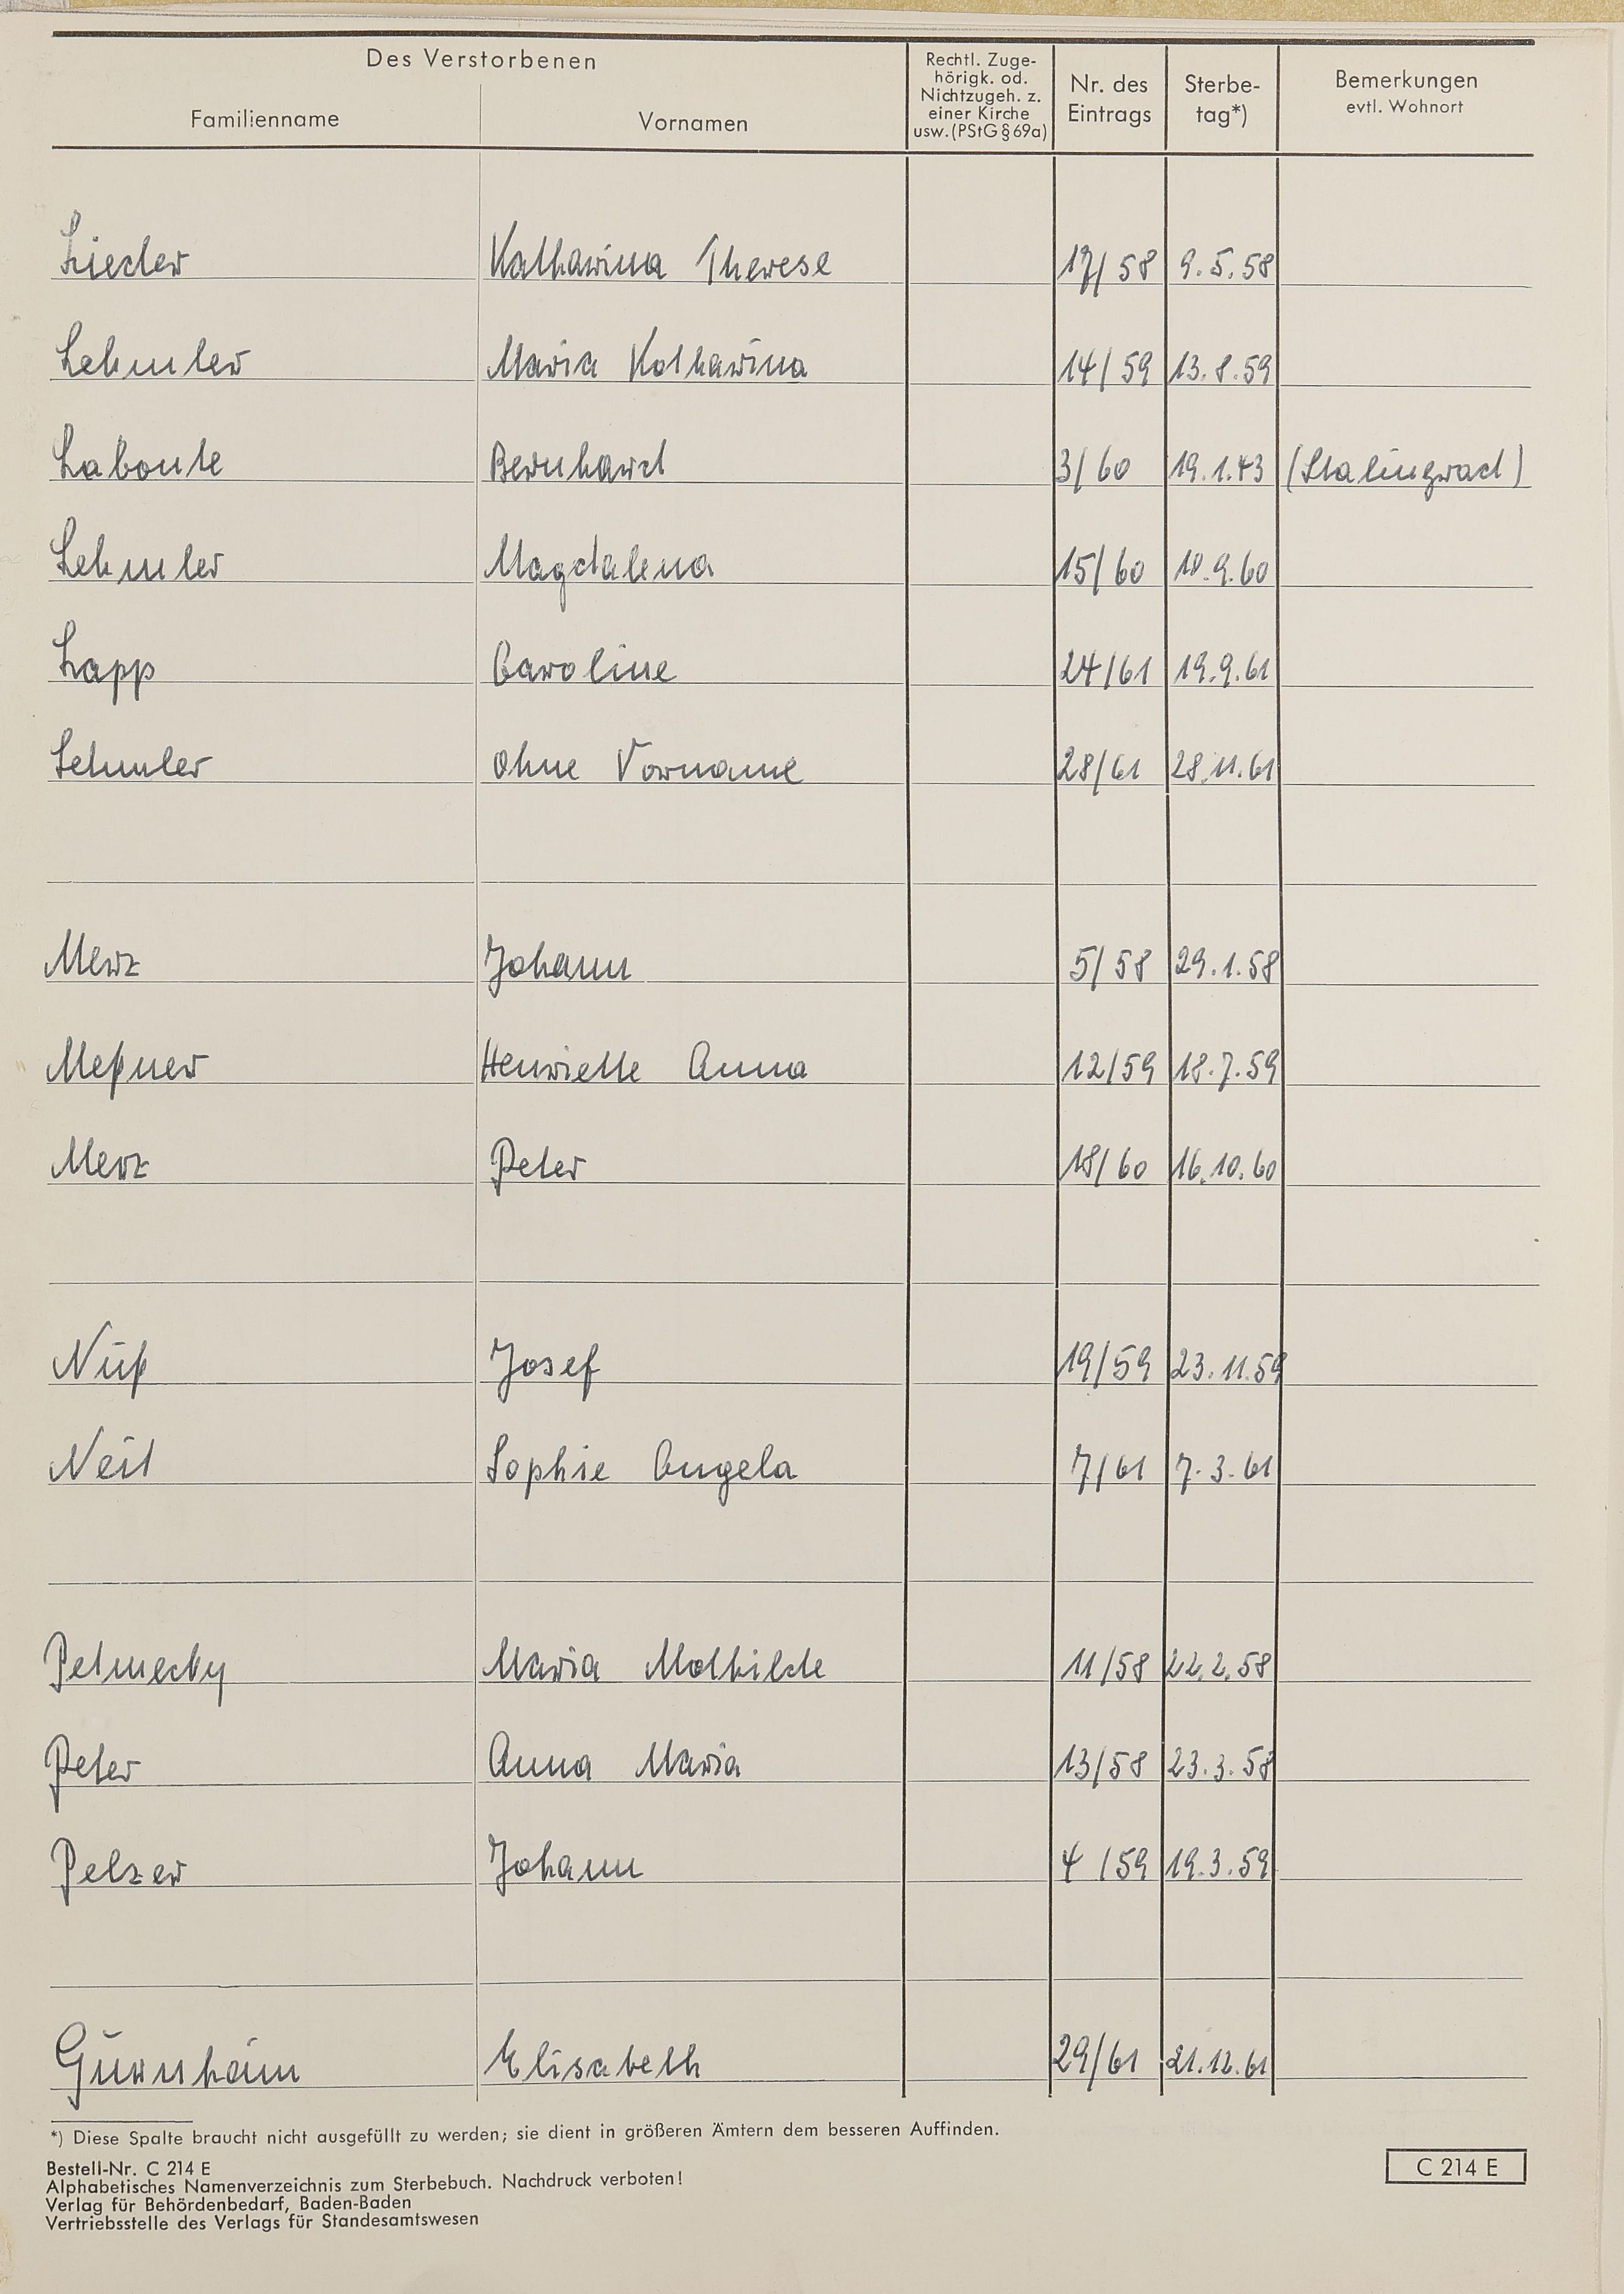 Des Verstorbenen
Familienname Vornamen
Rechtl. Zuge-
hörigk. od.
Nichtzugeh. z.
einer Kirche
usw. (PStG § 69a)
Nr. des
Eintrags
Sterbe-
tag*)
Bemerkungen
evtl. Wohnort
Lieder Katharina Therese 17/58 9.5.58
Lehmler Maria Katharina 14/59 13.8.59
Labonte Bernhard 3/60 19.1.43 (Stalingrad)
Lehmler Magdalena 15/60 10.9.60
Lapp Caroline 24/61 19.9.61
Lehmler ohne Vorname 28/61 28.11.61
Merz Johann 5/58 29.1.58
Meßner Henriette Anna 12/59 18.7.59
Merz Peter 18/60 16.10.60
Nuß Josef 19/59 23.11.59
Neit Sophie Angela 7/61 7.3.61
Petmecky Maria Mathilde 11/58 22.2.58
Peter Anna Maria 13/58 23.3.58
Pelzer Johann 4/59 19.3.59
Elisabeth 29/61 21.12.61
*) Diese Spalte braucht nicht ausgefüllt zu werden; sie dient in größeren Ämtern dem besseren Auffinden.
Bestell-Nr. C 214 E
Alphabetisches Namenverzeichnis zum Sterbebuch. Nachdruck verboten!
Verlag für Behördenbedarf, Baden-Baden
Vertriebsstelle des Verlags für Standesamtswesen
C 214 E